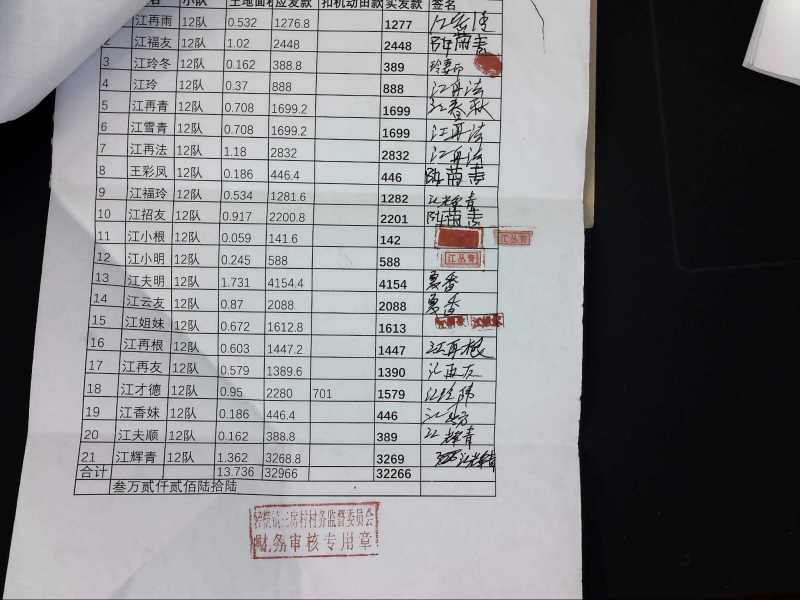 名 小队 土地面积 应发款 扣机动田款 实发款 签名
江再雨 12队 0.532 1276.8 1277
2 江福友 12队 1.02 2448 2448 陈菊青
3 江玲冬 12队 0.162 388.8 389
4 江玲 12队 0.37 888 888 江再法
5 江再青 12队 0.708 1699.2 1699 江春秋
6 江雪青 12队 0.708 1699.2 1699 江再法
7 江再法 12队 1.18 2832 2832 江再法
8 王彩凤 12队 0.186 446.4 446 陈菊青
9 江福玲 12队 0.534 1281.6 1282 江辉青
10 江招友 12队 0.917 2200.8 2201 陈菊青
11 江小根 12队 0.059 141.6 142 江丛青
12 江小明 12队 0.245 588 588 江丛青
13 江夫明 12队 1.731 4154.4 4154 夏香
14 江云友 12队 0.87 2088 2088 夏香
15 江姐妹 12队 0.672 1612.8 1613
16 江再根 12队 0.603 1447.2 1447 江再根
17 江再友 12队 0.579 1389.6 1390 江再友
18 江才德 12队 0.95 2280 701 1579
19 江香妹 12队 0.186 446.4 446
20 江夫顺 12队 0.162 388.8 389 江辉青
21 江辉青 12队 1.362 3268.8 3269 江辉青
合计 13.736 32966 32266
叁万贰仟贰佰陆拾陆
三房村村务监督委员会
财务审核专用章